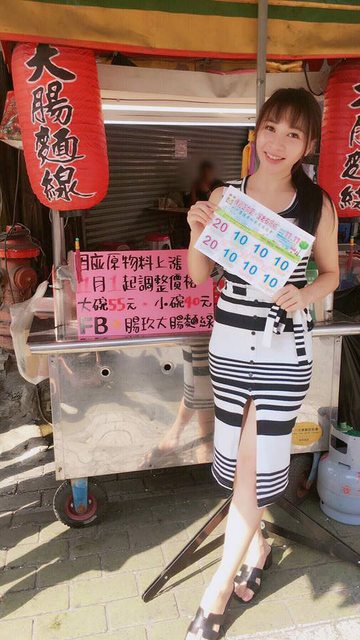 大腸麵線
因應原物料上漲
7月1起調整價格
大碗55元、小碗40元
FB 腸玖大腸麵線
20 10 10 10
20 10 10 10